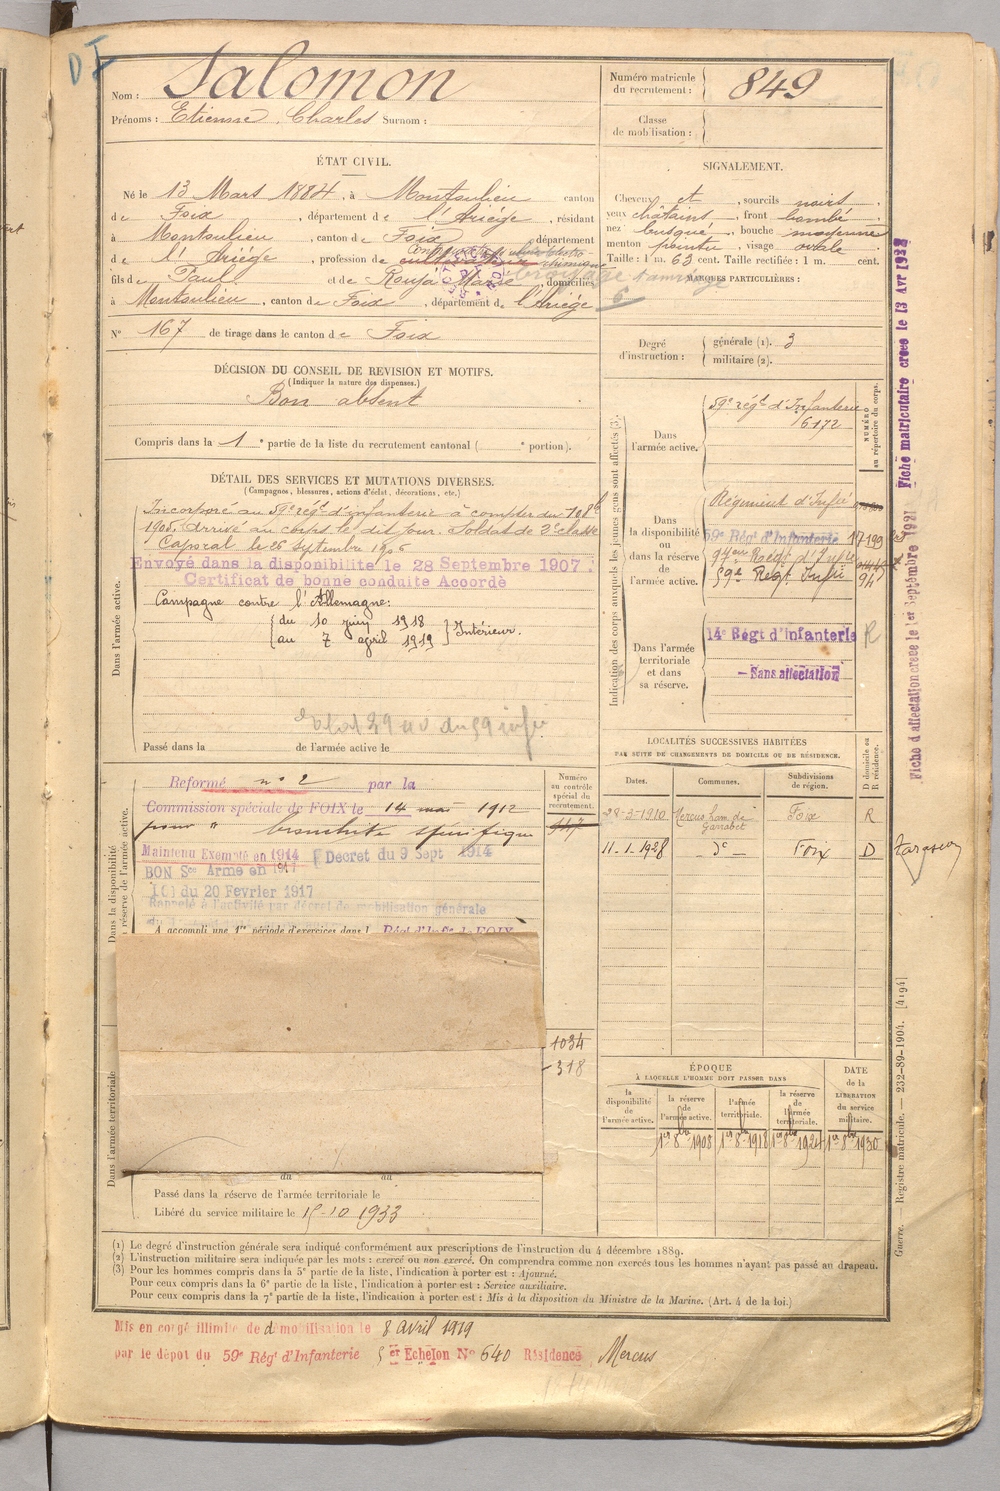 DI
Nom : Salomon
Prénoms : Etienne Charles Surnom :
Numéro matricule du recrutement : 849
Classe de mobilisation :
ÉTAT CIVIL.
Né le 13 Mars 1884, à Montoulieu canton
de Foix, département de l'Ariège, résidant
à Montoulieu, canton de Foix, département
de l'Ariège, profession de cultivateur
fils de Paul et de Rouja Marie, domiciliés
à Montoulieu, canton de Foix, département de l'Ariège
N° 167 de tirage dans le canton de Foix
SIGNALEMENT.
Cheveux et, sourcils noirs,
yeux châtains, front bombé,
nez busqué, bouche moyenne
menton pointu, visage ovale
Taille : 1 m. 63 cent. Taille rectifiée : 1 m. cent.
MARQUES PARTICULIÈRES :
6
Degré d'instruction :
générale (1). 3
militaire (2).
DÉCISION DU CONSEIL DE REVISION ET MOTIFS.
(Indiquer la nature des dispenses.)
Bon absent
Compris dans la 1e partie de la liste du recrutement cantonal ( e portion).
DÉTAIL DES SERVICES ET MUTATIONS DIVERSES.
(Campagnes, blessures, actions d'éclat, décorations, etc.)
Dans l'armée active.
Incorporé au 59e régt d'infanterie à compter du 10 8bre
1905. Arrivé au corps le dit jour. Soldat de 2e classe
Caporal le 26 Septembre 1906
Envoyé dans la disponibilité le 28 Septembre 1907.
Certificat de bonne conduite Accordé
Campagne contre l'Allemagne :
du 10 juin 1918
au 7 avril 1919 } Intérieur.
Passé dans la de l'armée active le
Indication des corps auxquels les jeunes gens sont affectés (3).
NUMÉRO au répertoire du corps.
Dans l'armée active.
59e régt d'Infanterie
6172
Dans la disponibilité ou dans la réserve de l'armée active.
Régiment d'Infie
59e Régt d'Infanterie 17199
94e Régt d'Infie
59e Régt Infie 94
Dans l'armée territoriale et dans sa réserve.
14e Régt d'Infanterie R
— Sans affectation
Fiche matriculaire créée le 13 Avr 1922
Fiche d'affectation créée le 1er Septembre 1921
LOCALITÉS SUCCESSIVES HABITÉES
PAR SUITE DE CHANGEMENTS DE DOMICILE OU DE RÉSIDENCE.
Dates. Communes. Subdivisions de région. D domicile ou R résidence.
28-3-1910 Mercus Garrabet Foix R
11-1-1928 — do — Foix D Tarascon
Dans la disponibilité
réserve de l'armée active.
Numéro au contrôle spécial du recrutement.
Reformé n° 2 par la
Commission spéciale de FOIX le 14 mai 1912
pour " bronchite spécifique
Maintenu Exempté en 1914 [Decret du 9 Sept 1914
BON Sce Armé en 1917
du 20 Fevrier 1917
Rappelé à l'activité par décret de mobilisation générale
A accompli une 1re période d'exercices dans l Régt d'Infie de FOIX
Dans l'armée territoriale
1034
318
du au
Passé dans la réserve de l'armée territoriale le
Libéré du service militaire le 15-10 1933
ÉPOQUE
À LAQUELLE L'HOMME DOIT PASSER DANS
la disponibilité de l'armée active.
la réserve de l'armée active.
l'armée territoriale.
la réserve de l'armée territoriale.
DATE de la LIBÉRATION du service militaire.
1er 8bre 1908 1er 8bre 1918 1er 8bre 1924 1er 8bre 1930
Guerre. — Registre matricule. — 232-89-1904. [4194]
(1) Le degré d'instruction générale sera indiqué conformément aux prescriptions de l'instruction du 4 décembre 1889.
(2) L'instruction militaire sera indiquée par les mots : exercé ou non exercé. On comprendra comme non exercés tous les hommes n'ayant pas passé au drapeau.
(3) Pour les hommes compris dans la 5e partie de la liste, l'indication à porter est : Ajourné.
Pour ceux compris dans la 6e partie de la liste, l'indication à porter est : Service auxiliaire.
Pour ceux compris dans la 7e partie de la liste, l'indication à porter est : Mis à la disposition du Ministre de la Marine. (Art. 4 de la loi.)
Mis en congé illimité de démobilisation le 8 avril 1919
par le dépôt du 59e Régt d'Infanterie er Echelon N° 640 Résidence Mercus